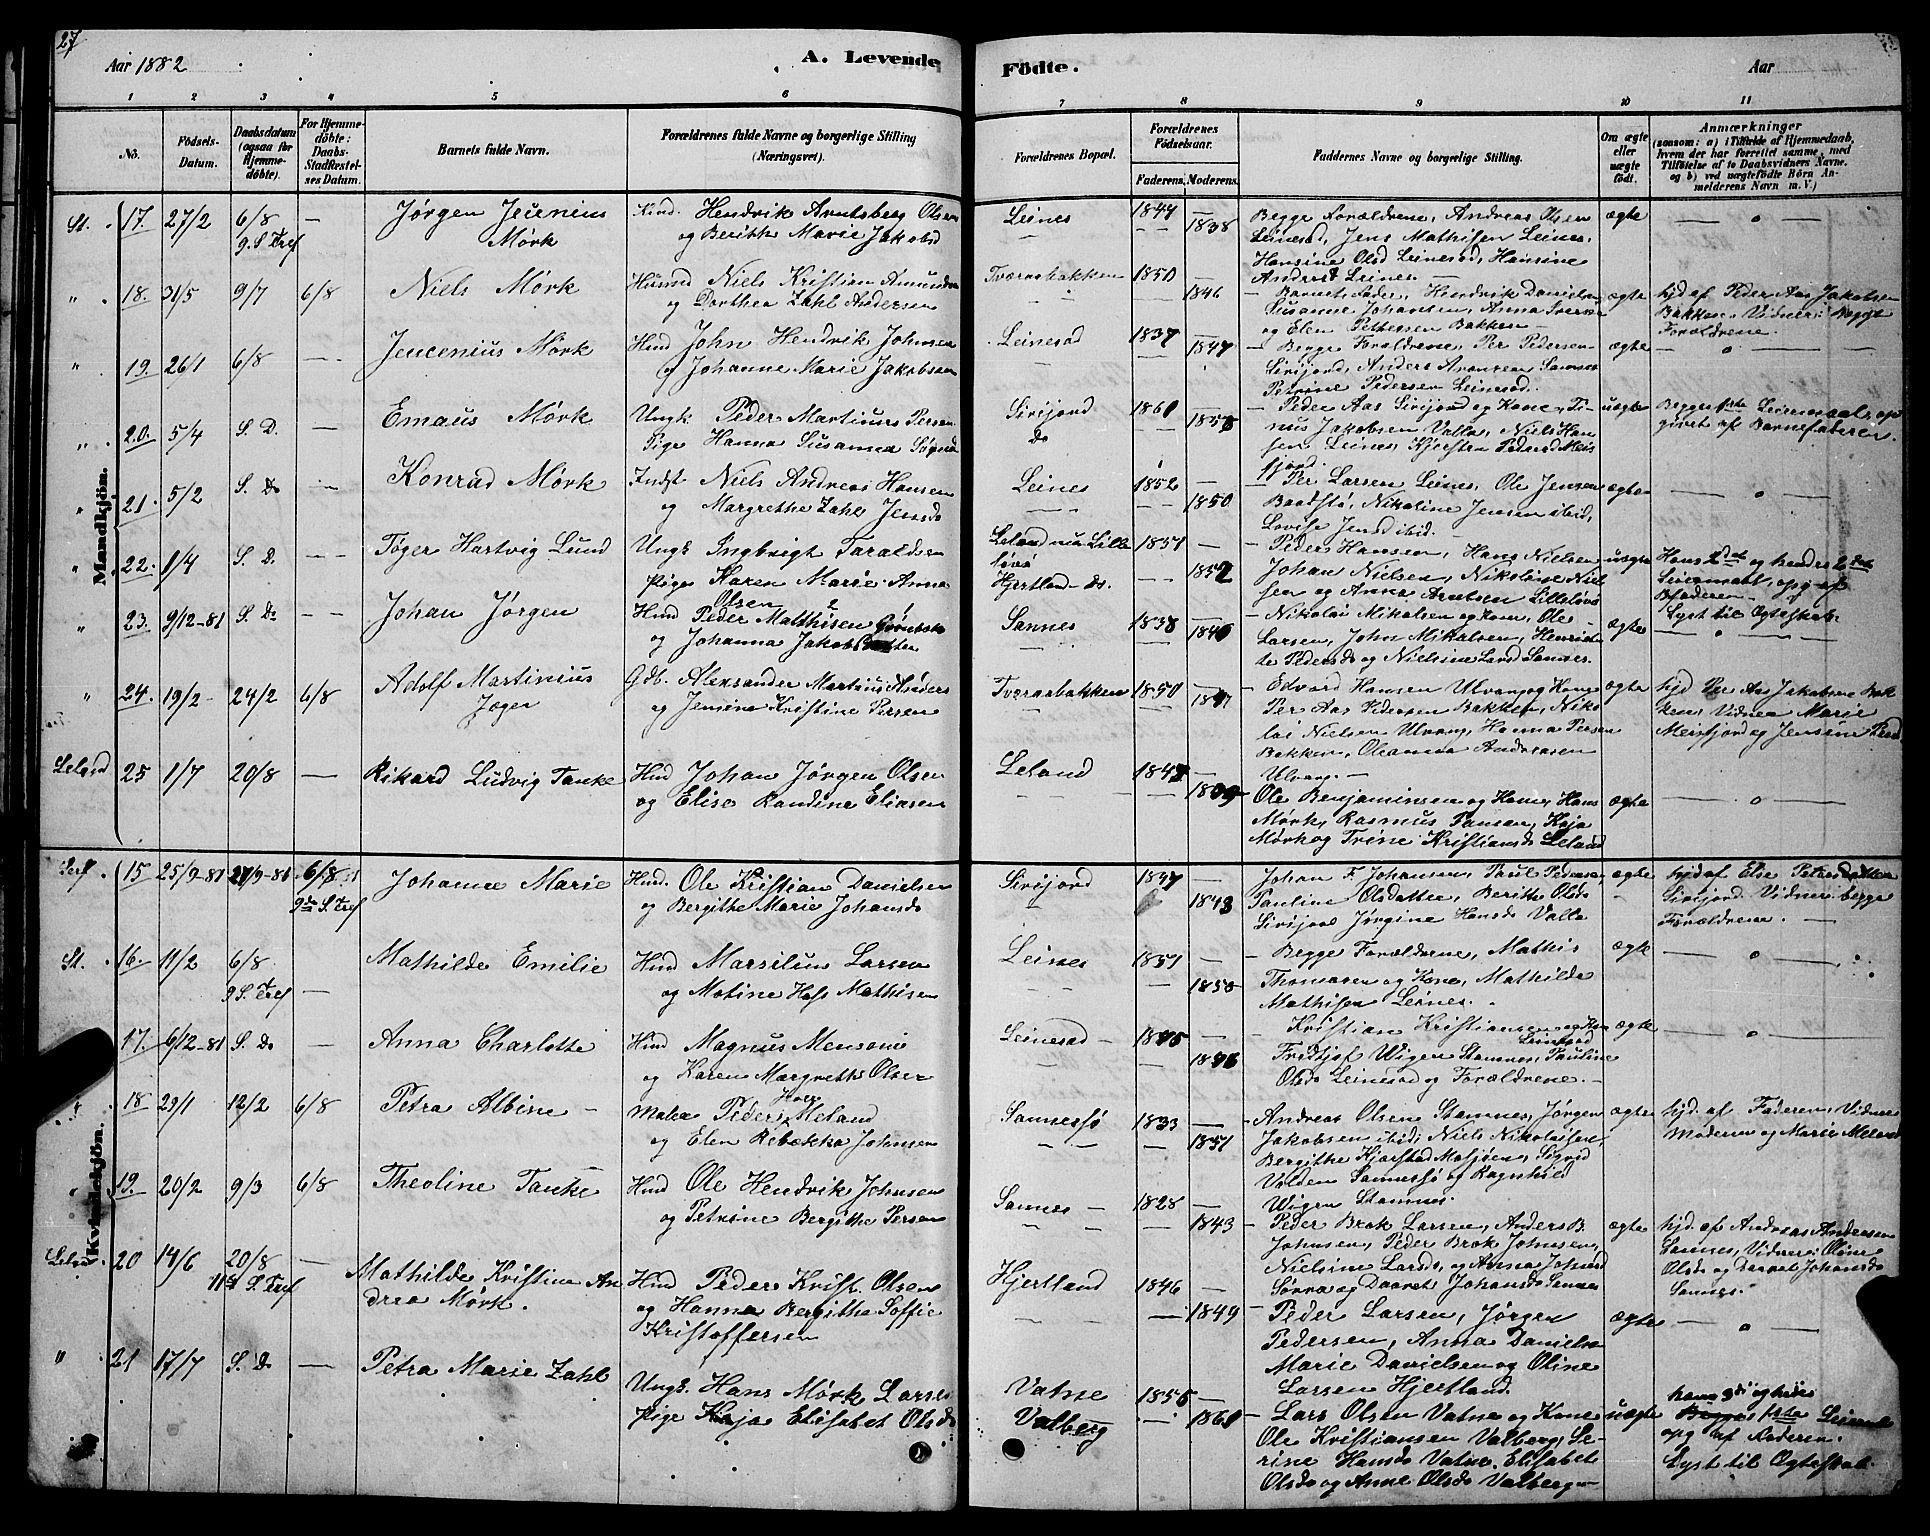 27
Aar 1882
A. Levende
Födte.
Aar
1 2 3 4 5 6 7 8 9 10 11
No.
Födsels-
Datum.
Daabsdatum
(ogsaa for
Hjemme-
döbte).
For Hjemme-
döbte:
Daabs-
Stadfæstel-
ses Datum.
Barnets fulde Navn.
Forældrenes fulde Navne og borgerlige Stilling
(Næringsvei).
Forældrenes Bopæl.
Forældrenes
Födselsaar.
Faderens. Moderens.
Faddernes Navne og borgerlige Stilling.
Om ægte
eller
uægte
födt.
Anmærkninger
(saasom: a) i Tilfælde af Hjemmedaab,
hvem der har forrettet samme, med
Tilföielse af to Daabsvidners Navne,
og b) ved uægtefödte Börn An-
melderens Navn m. V.)
Mandkjön.
St. 17. 27/2 6/8 —
9. S. Tref
Jørgen Jeuenius
Mörk
Hind. Hendrik Arntsberg Olsen
og Berithe Marie Jakobsd
Leines
1844 —
1838
Begge Forældrene, Andreas Olsen
Leinesod, Jens Mathisen Leines,
Hansine Olsd Leinesod, Hansine
Andersd Leines —
ægte
— o —
" 18. 31/5 9/7 6/8
Niels Mørk
Husmd Niels Kristian Amundsen
og Dorthea Zahl Andersen
Tværaabakken
1850 —
1846
Barnets Fader, Hendrik Danielsen
Susanne Johansen, Anna Iversen
og Elen Pettersen Bakken —
ægte
hjd af Peder Aas Jakobsen
Bakken, Vidner: Begge
Forældrene.
" 19. 26/1 6/8 —
Jeucenius Mørk
Hind John Hendrik Johnsen
og Johanne Marie Jakobsen
Leinesod
1837 —
1847
Begge Forældrene, Per Pedersen
Sirijord, Anders Aronsen Sannes
Petrine Pedersen Leinesod.
ægte
— o —
" 20. 5/4 S. D. —
Emaus Mørk
Ungk Peder Martinus Persen
Pige Hanna Susanna
Sirijord
Do
1860
1858
Peder Aas Sirijord og Kone, Ti-
nus Jakobsen Valla, Niels Han-
sen Leines, Kjerstin Pedersd Meis
fjord.
uægte
Begges 1ste Leiermaal, op
givet af Barnefaderen.
" 21. 5/2 S. Do —
Konrad Mørk
Indst Niels Andreas Hansen
og Margrethe Zahl Jensd
Leines
1852 —
1850
Per Larsen Leines, Ole Jensen
Baadstø, Nikoline Jensen ibid,
Lovise Jensd ibid.
ægte
— o —
" 22. 1/4 S. D. —
Tøger Hartvig Lund
Ungk Ingbrigt Taraldsen
Pige Karen Marie Anna
Olsen
Leland
Hjertland Do.
1857 —
1852
Peder Hansen, Hans Nielsen
Johan Nielsen, Nikoline Niel
sen og Anna Arntsen
uægte
Hans 2det og hendes 2det
Leiermaal, opg af
Bfaderen —
Lyst til Ægteskab
" 23. 9/12-81 S. Do —
Johan Jørgen
Hind Peder Mathisen
og Johanna Jakobsdatter
Sannes
1838 —
1840
Nikolai Mikalsen og Kone, Ole
Larsen, John Mikalsen, Henriet-
te Pedersd og Nielsine Larsd Sannes.
ægte
— o —
" 24. 19/2 24/2 6/8
Adolf Martinius
Jæger
Gdb. Aleksander Martinus Anders
og Jensine Kristine Persen
Tværaabakken
1850 —
1847
Edvard Hansen Ulvang og Kone
Per Aas Pedersen Bakken, Niko
lai Nielsen Ulvang, Hanna Persen
Bakken, Oleanna Andersen
Ulvang. —
ægte
hjd Per Aas Jakobsen Bak
ken, Vidner Marie
Meisfjord og Jensen
Leland 25 1/7 20/8 —
Rikard Ludvig Tanke
Hind Johan Jørgen Olsen
og Elise Randine Eliasen
Leland
1847 —
1839
Ole Benjaminsen og Kone, Hans
Mørk, Rasmus Hansen, Kaja
Mørk og Trine Kristiansd Leland
ægte
— o —
Kvindekjön.
15 25/9-81 27/9-81 6/8
9de S. Tref
Johanne Marie
Hind. Ole Kristian Danielsen
og Bergithe Marie Johansd
Sirijord
1847
1843
Johan F Johansen, Paul Pedersen,
Pauline Olsdatter, Berithe Olsd
Sirijord Jørgine Hansd Valla
ægte
hjd af Else Petersdatter
Sirijord. Vidner begge
Forældrene. —
St. 16. 11/2 6/8
9 S. Tref —
Mathilde Emilie
Hind Marsilius Larsen
og Motine Hass Mathisen
Leines
1851 —
1850
Begge Forældrene, Mathis
Thomasen og Kone, Mathilde
Mathisen Leines.
ægte
— o —
17. 6/12-81 S. Do —
Anna Charlotte
Hind Magnus Mensonius
og Karen Margrethe Olsen
Leinesod
1845 —
1846
Kristian Kristiansen og Kone
Leinesod
Fridtjof Wigen Stamnes, Pauline
Olsd Leinesod og Forældrene. —
ægte
— o —
18 29/1 12/2 6/8
Petra Albine —
Maler Peder Meland
og Elen Rebekka Johnsen
Sannessjø
1833 —
1857
Andreas Olsen Stamnes, Jørgen
Jakobsen ibid, Niels Nikolaisen,
Bergithe Kjærstad Mosjøen, Sigrid
Volden Sannessjø og Ragnhild
Wigen Stamnes.
ægte
hjd. af Faderen, Vidner
Moderen og Marie Meland
19. 20/2 9/3 6/8
Theoline Tanke
Hind Ole Hendrik Johnsen
og Petrine Bergithe Persen
Sannes
1828 —
1843
Peder Brok Larsen, Anders B.
Johnsen, Peder Brok Johnsen,
Nielsine Larsd, og Anna Johnsd
Sørra og Daaret Johansd Sannes
ægte
hjd. af Andreas Andersen
Sannes, Vidner: Oline
Olsd og Daaret Johansd
Sannes.
Leland 20 14/6 20/8
11te S. Tref —
Mathilde Kristine An
drea Mørk.
Hind Peder Krist. Olsen
og Hanna Bergitha Soffie
Kristoffersen
Hjertland
1846 —
1849
Peder Larsen, Jørgen
Pedersen, Anna Danielsen
Marie Danielsen og Oline
Larsen Hjertland.
ægte
— o —
" 21 17/7 S. D —
Petra Marie Zahl
Ungk. Hans Mørk Larsen
Pige Kaja Elisabet Olsd
Vatne
Valberg
1856 —
1860
Lars Olsen Vatne og Kone
Ole Kristiansen Valberg, Se-
rine Hansd Vatne, Elisabet
Olsd og Anne Olsd Valberg —
uægte
hans 3die og hendes
1ste Leierml
opg af Faderen.
Lyst til Ægteskab.